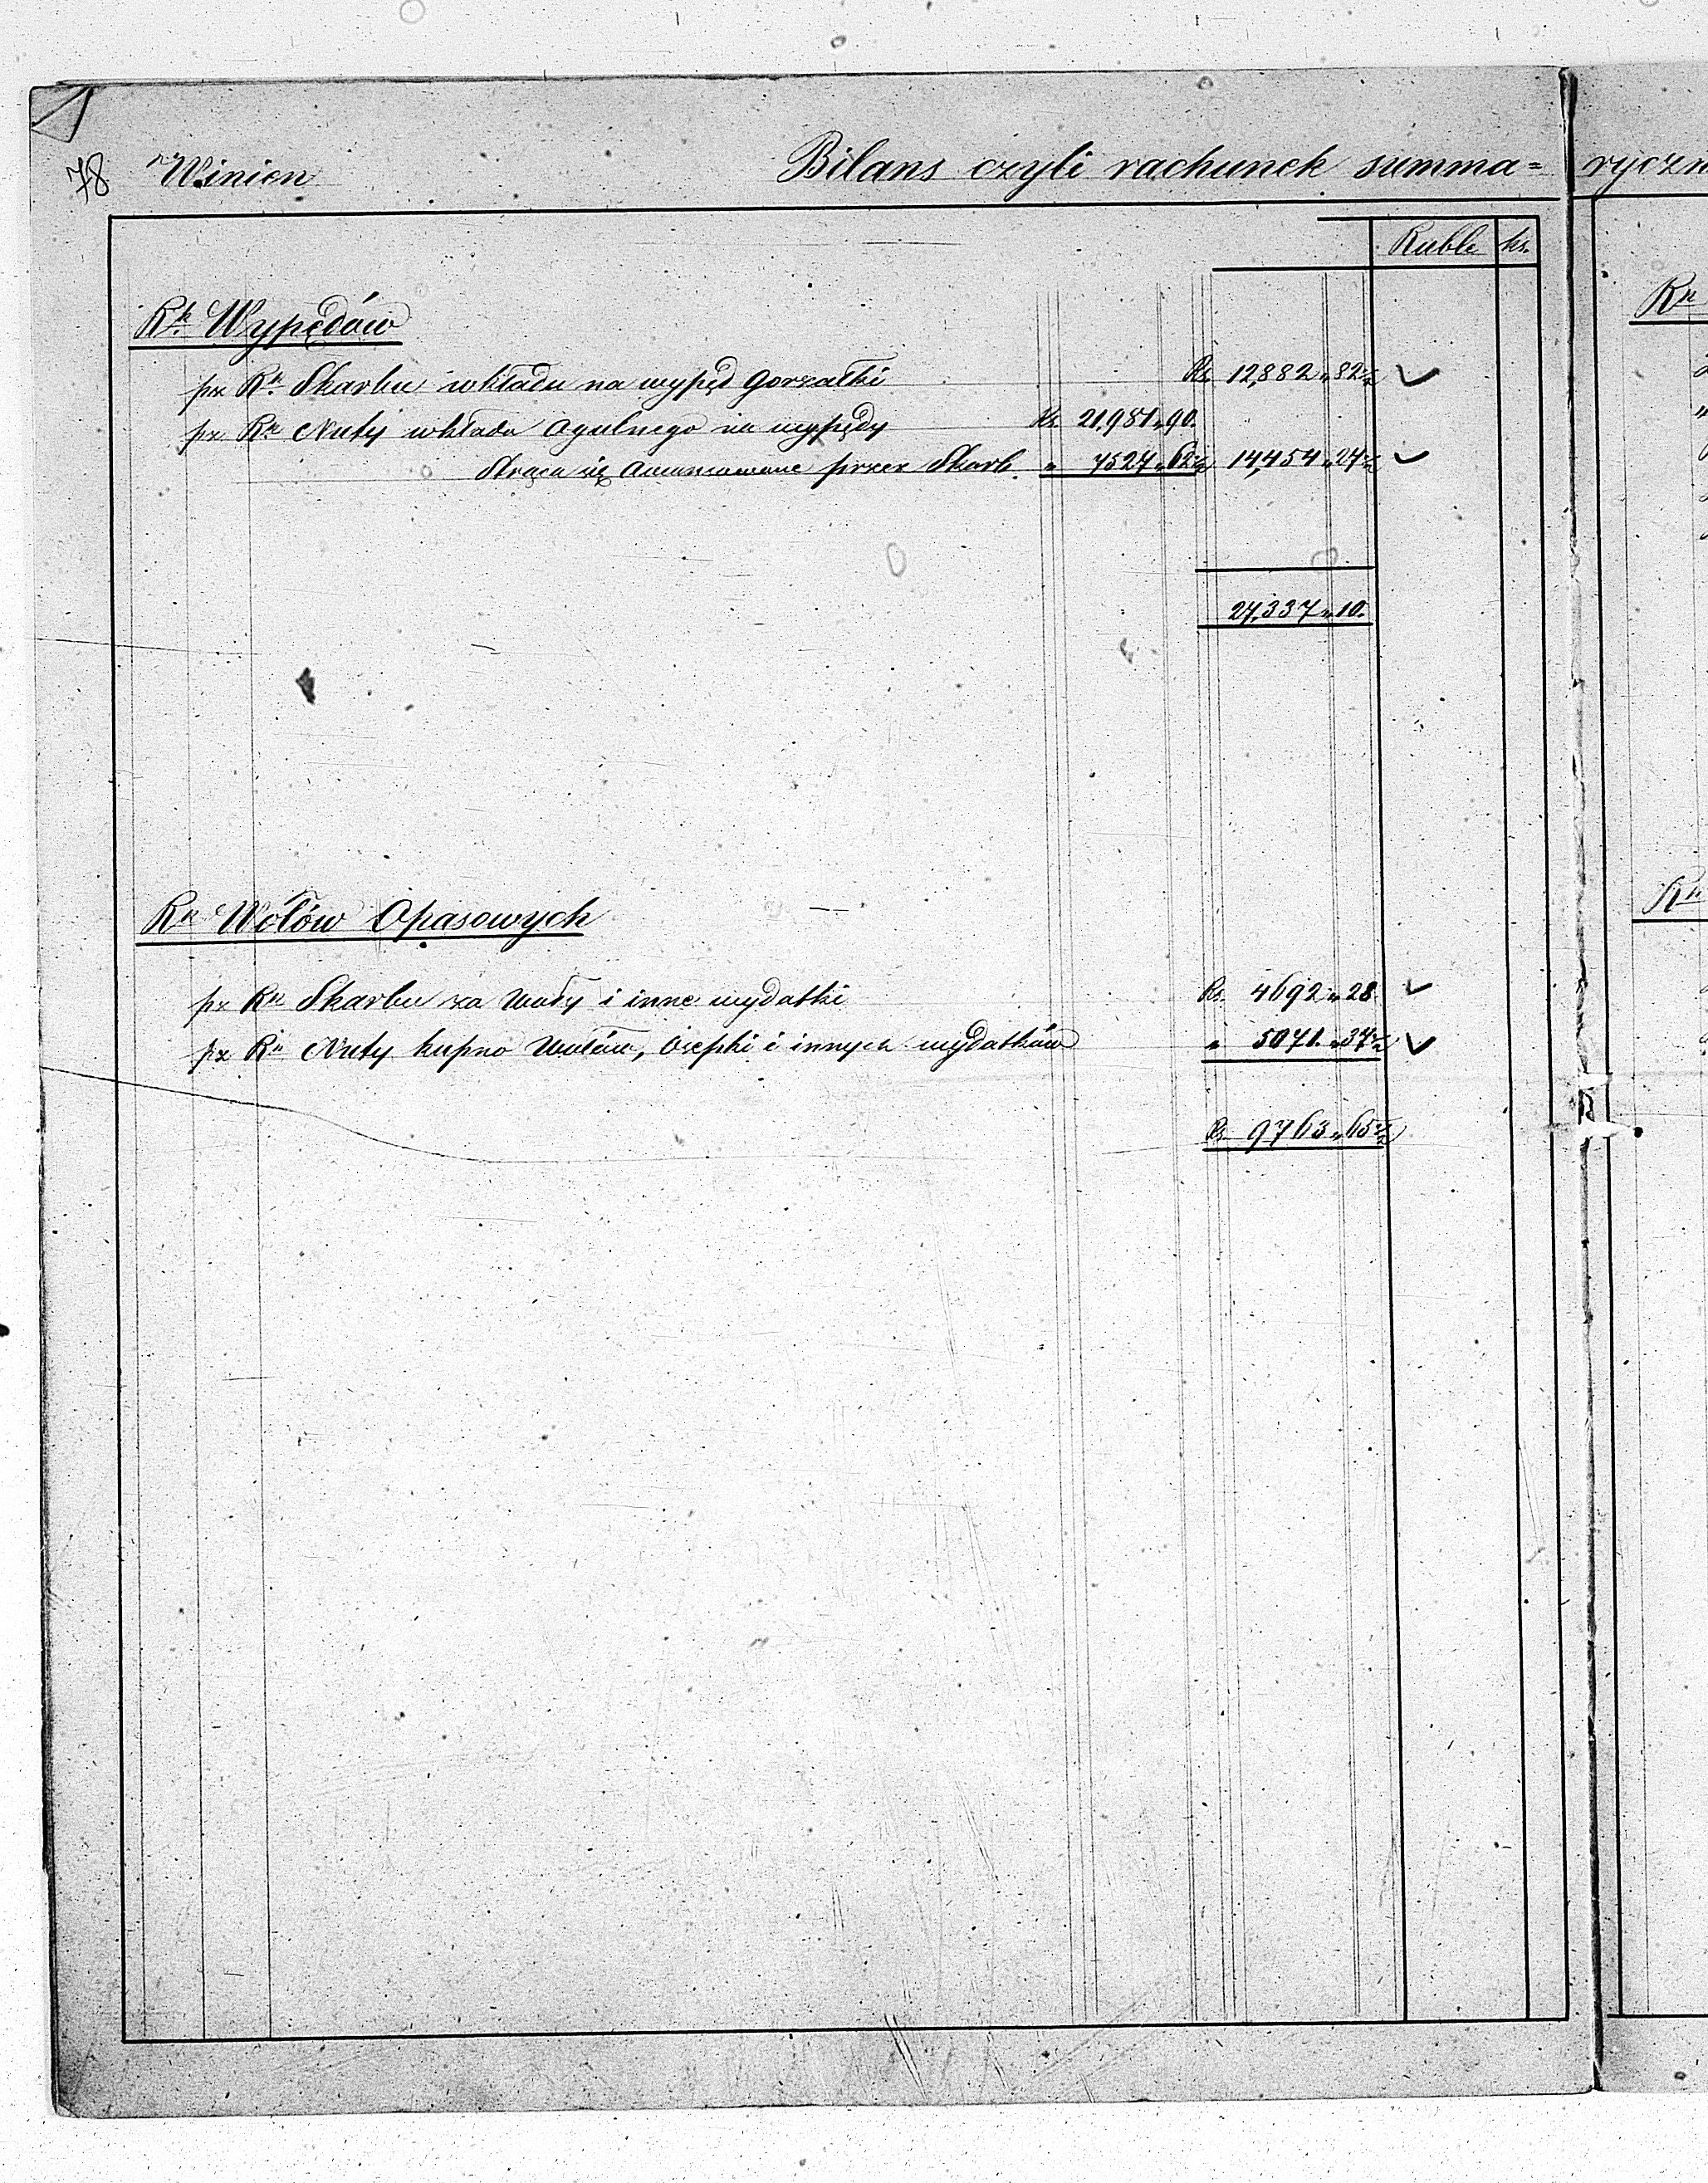 78 Winien Bilans czyli rachunek summa=
Ruble ks.
Rk. Wypędów
pr Rk. Skarbu wkładu na wypęd gorzałki Rs. 12,882 „ 82½
pr Rk Nuty wkładu ogulnego na wypędy Rs. 21,981 „ 90.
Strąca się przez Skarb. „ 7527 „ 62½ 14,454 „ 27½
27,337 „ 10.
Rk Wołów Opasowych
pr Rk Skarbu za woły i inne wydatki Rs. 4692 „ 28
pr Rk Nuty kupno wołów, Osepki i innych wydatków „ 5071 „ 37½
Rs. 9763 „ 65½
ryczn
Rk
Rk